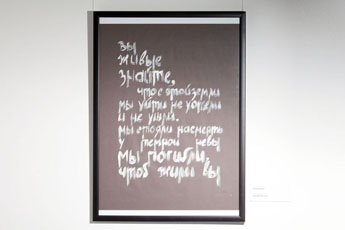 вы
живые
знайте,
что с этой земли
мы уйти не хотели
и не ушли.
мы стояли насмерть
у темной невы
мы погибли,
чтоб жили вы